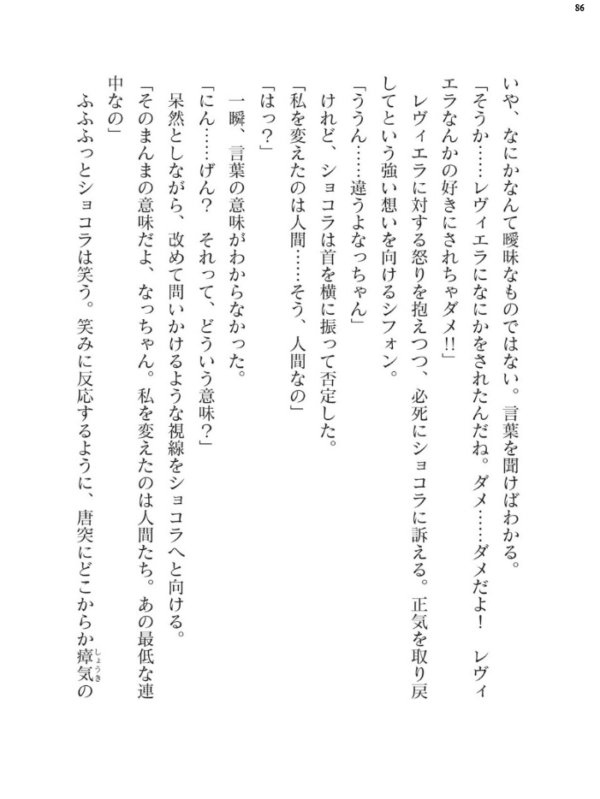 86
いや、なにかなんて曖昧なものではない。言葉を聞けばわかる。
「そうか……レヴィエラになにかをされたんだね。ダメ……ダメだよ！　レヴィ
エラなんかの好きにされちゃダメ!!」
　レヴィエラに対する怒りを抱えつつ、必死にショコラに訴える。正気を取り戻
してという強い想いを向けるシフォン。
「ううん……違うよなっちゃん」
　けれど、ショコラは首を横に振って否定した。
「私を変えたのは人間……そう、人間なの」
「はっ？」
　一瞬、言葉の意味がわからなかった。
「にん……げん？　それって、どういう意味？」
　呆然としながら、改めて問いかけるような視線をショコラへと向ける。
「そのまんまの意味だよ、なっちゃん。私を変えたのは人間たち。あの最低な連
中なの」
　ふふふっとショコラは笑う。笑みに反応するように、唐突にどこからか瘴気の
しょうき